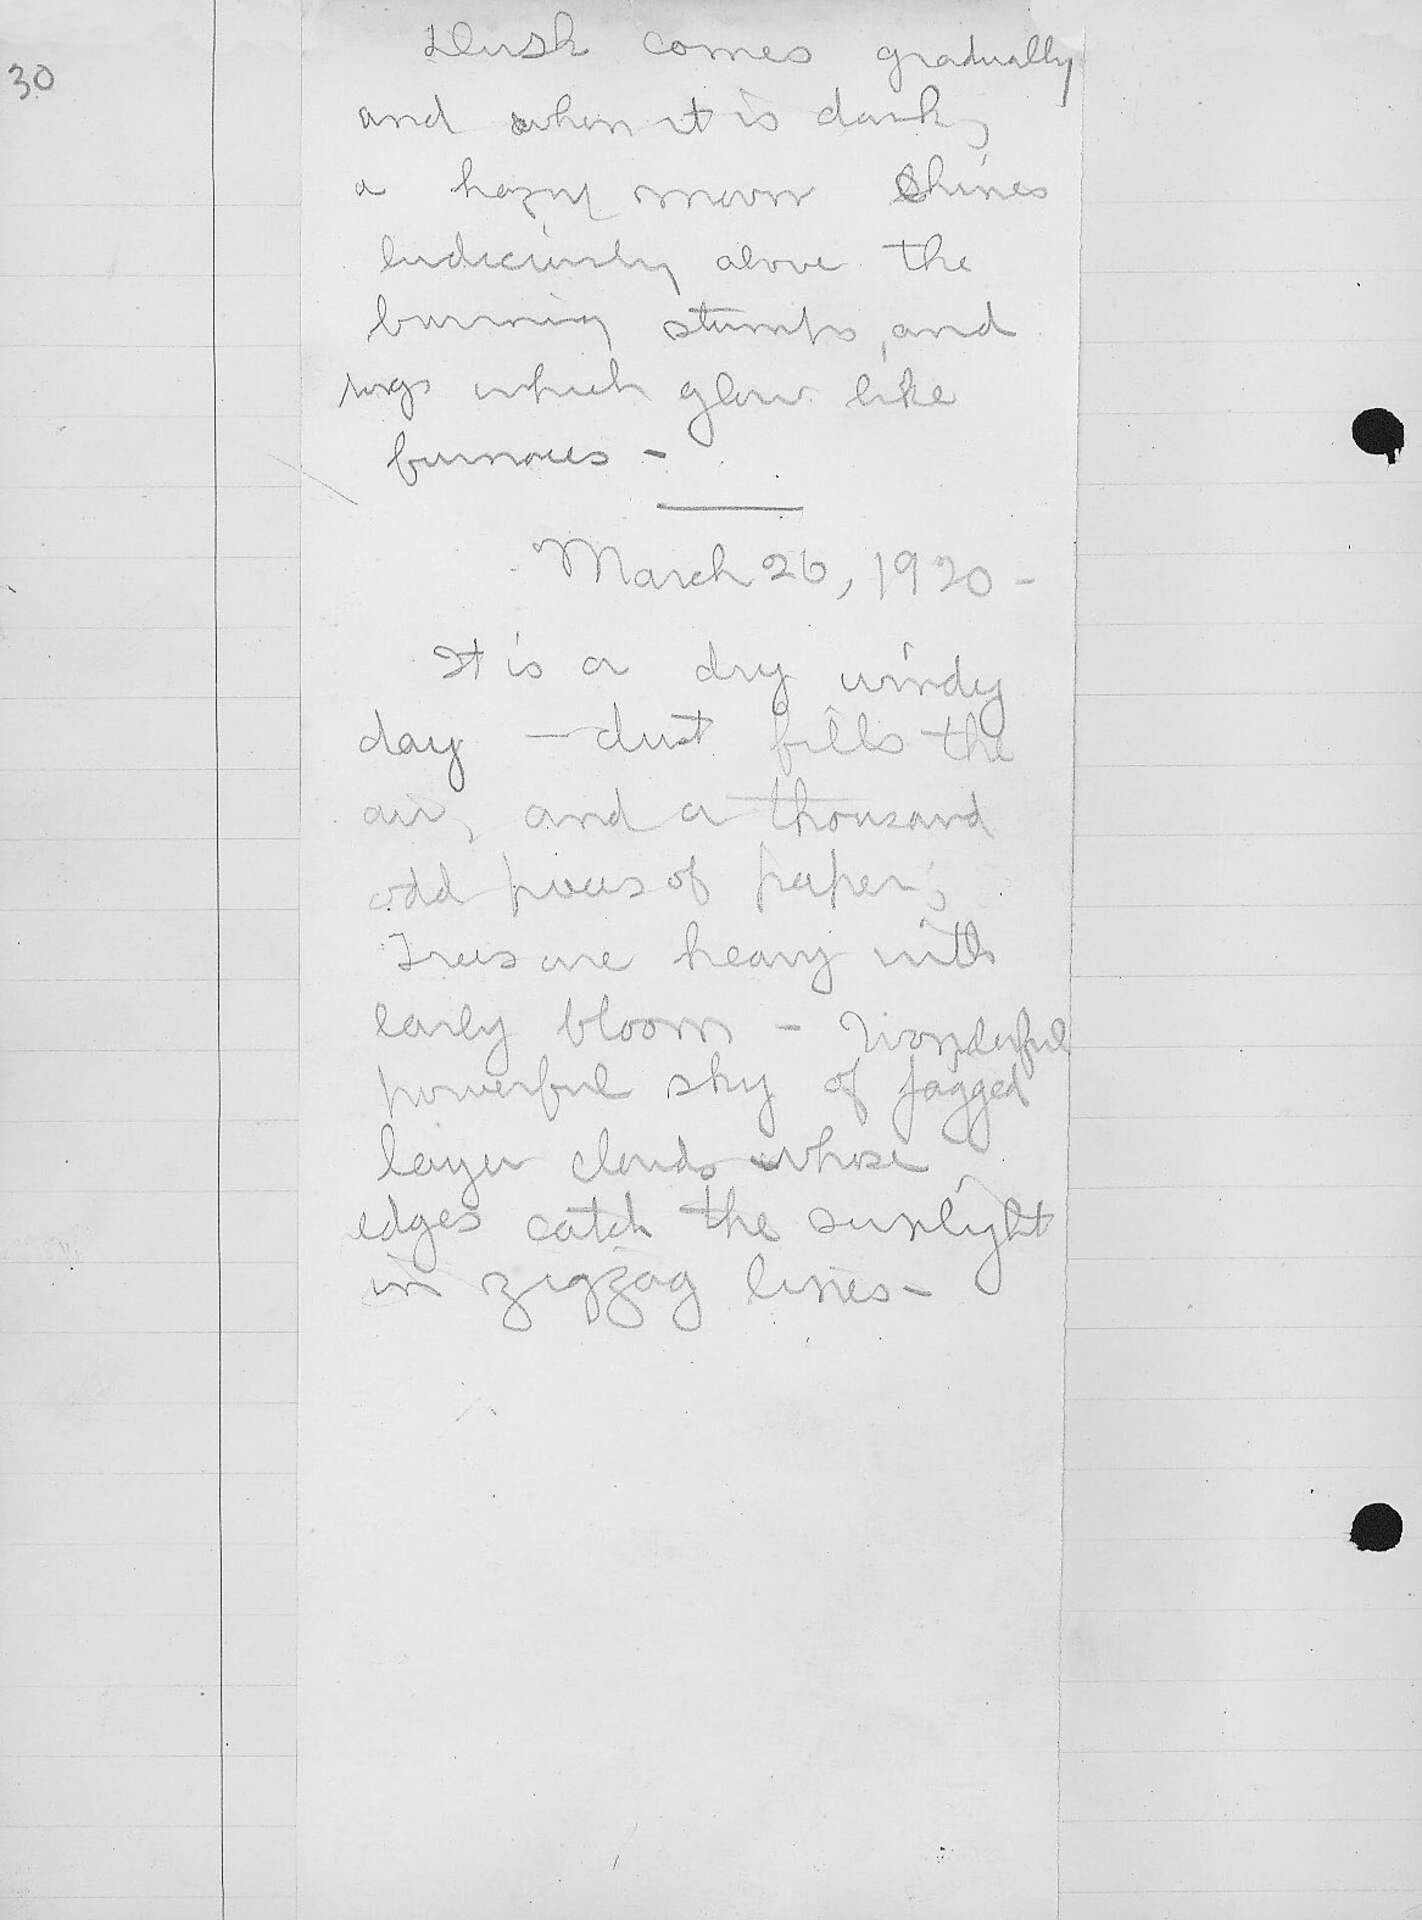 30
Dusk comes gradually
and when it is dark,
a hazy moon shines
ludiciously above the
burning stumps, and
logs which glow like
furnaces -
March 26, 1920 -
It is a dry windy
day - dust fills the
air, and a thousand
odd pieces of paper;
Trees are heavy with
early bloom - Wonderful
powerful sky of jagged
layer clouds whose
edges catch the sunlight
in zigzag lines -